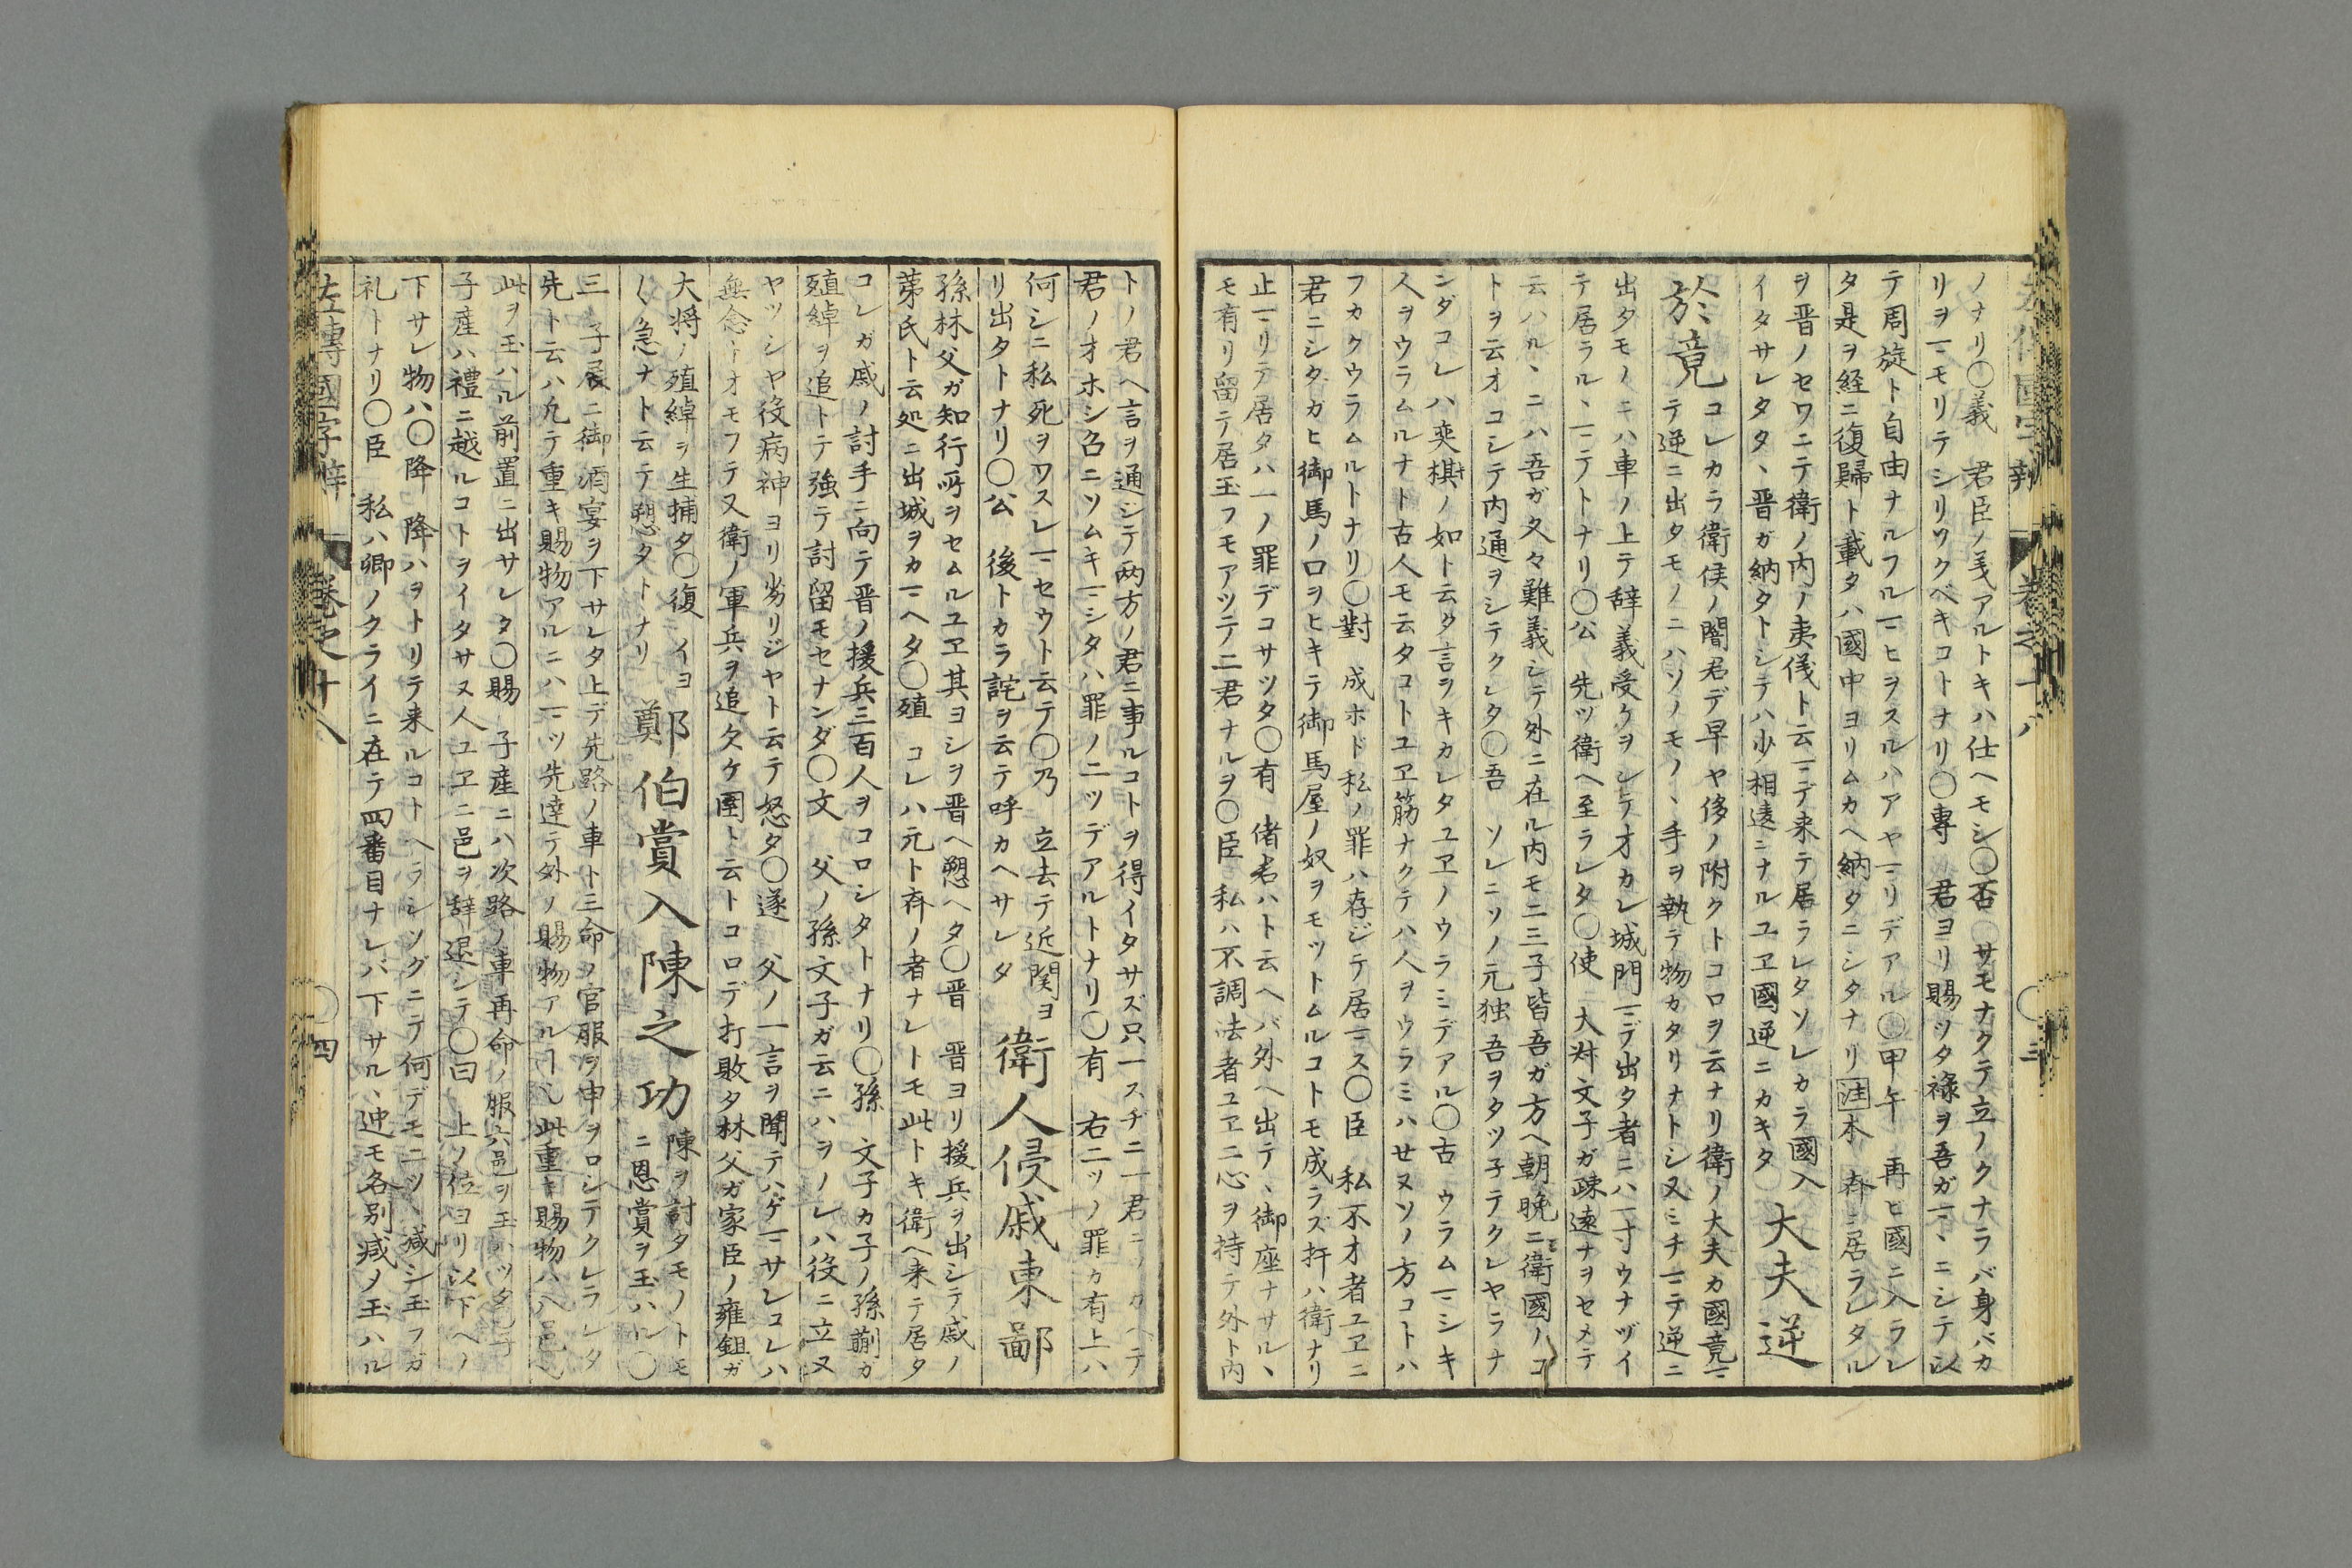 左傳國字辯 卷之十八 〇三
ノナリ〇義 君臣ノ義アルトキハ仕ヘモシ〇否 サモナクテ立ノクナラバ身バカ
リヲヿモリテシリゾクベキコトナリ〇專 君ヨリ賜ツタ祿ヲ吾ガヿヽニシテ以
テ周旋ト自由ナルフルヿヒヲスルハアヤヿリデアル〇甲午 再ヒ國ニ入ラレ
タ是ヲ経ニ復歸ト載タハ國中ヨリムカヘ納タニシタナリ注本 斉ニ居ラレタル
ヲ晋ノセワニテ衛ノ内ノ夷儀ト云ヿデ来テ居ラレタソレカラ國入
イタサレタタヽ晋ガ納タトシテハ少相遠ニナルユヱ國逆ニカキタ 大夫逆
於竟 コレカラ衛侯ノ闇君デ早ヤ侈ノ附クトコロヲ云ナリ衛ノ大夫カ國竟ヿ
テ逆ニ出タモノニハソノモノヽ手ヲ執テ物カタリナトシ又ミチヿテ逆ニ
出タモノニハ車ノ上テ辞義受ケヲシテオカレ城門ヿデ出タ者ニハ一寸ウナヅイ
テ居ラルヽヿテトナリ〇公 先ツ衛ヘ至ラレタ〇使 大叔文子ガ疎遠ナヲセメテ
云ハルヽニハ吾ガ久々難義シテ外ニ在ル内モ二三子皆吾ガ方ヘ朝晩ニ衛國ノコ
トヲ云オコシテ内通ヲシテクレタ〇吾 ソレニソノ元独吾ヲタツ子テクレヤラナ
ンダコレハ奕棋ノ如ト云タ言ヲキカレタユヱノウラミデアル〇古 ウラムヿシキ
人ヲウラムルナト古人モ云タコトユヱ筋ナクテハ人ヲウラミハせヌソノ方コトハ
フカクウラムルトナリ〇對 成ホド私ノ罪ハ存ジテ居ヿス〇臣 私不才者ユヱニ
君ニシタガヒ御馬ノ口ヲヒキテ御馬屋ノ奴ヲモツトムルコトモ成ラズ扞ハ衛ナリ
止ヿリテ居タハ一ノ罪デコサツタ〇有 偖君ハト云ヘバ外ヘ出テヽ御座ナサルヽ
モ有リ留テ居玉フモアツテ二君ナルヲ〇臣 私ハ不調法者ユヱ二心ヲ持テ外ト内
トノ君ヘ言ヲ通シテ两方ノ君ニ事ルコトヲ得イタサズ只一スヂニ一君ニノカヘテ
君ノオホシ召ニソムキヿシタハ罪ノ二ツデアルトナリ〇有 右二ツノ罪カ有上ハ
何シニ私死ヲワスレヿセウト云テ〇乃 立去テ近関ヨ
リ出タトナリ〇公 後トカラ詫ヲ云テ呼カヘサレタ 衛人侵戚東鄙
孫林父ガ知行所ヲセムルユヱ其ヨシヲ晋ヘ愬ヘタ〇晋 晋ヨリ援兵ヲ出シテ戚ノ
茅氏ト云処ニ出城ヲカヿヘタ〇殖 コレハ元ト斉ノ者ナレトモ此トキ衛ヘ来テ居タ
コレガ戚ノ討手ニ向テ晋ノ援兵三百人ヲコロシタトナリ〇孫 文子カ子ノ孫蒯ガ
殖綽ヲ追トテ強テ討留モセナンダ〇文 父ノ孫文子ガ云ニハヲノレハ役ニ立ヌ
ヤツシヤ役病神ヨリ劣リジヤト云テ怒タ〇遂 父ノ一言ヲ聞テハゲヿサレコレハ
無念トオモフテ又衛ノ軍兵ヲ追欠ケ圉ト云トコロデ打敗タ林父ガ家臣ノ雍鉏ガ
大将ノ殖綽ヲ生捕タ〇復 イヨ
〳〵急ナト云テ愬タトナリ 鄭伯賞入陳之功 陳ヲ討タモノトモ
ニ恩賞ヲ玉ハル〇
三 子展ニ御酒宴ヲ下サレタ上デ先路ノ車ト三命ノ官服ヲ申ヲロシテクレラレタ
先ト云ハ凡テ重キ賜物アルニハヿヅ先達テ外ノ賜物アル 此重キ賜物ハ八邑
此ヲ玉ハル前置ニ出サレタ〇賜 子産ニハ次路ノ車再命ノ服六邑ヲ玉ハツタ
子産ハ禮ニ越ルコトヲイタサヌ人ユヱニ邑ヲ辞退シテ〇曰 上ノ位ヨリ以下ヘノ
下サレ物ハ〇降 降ハヲトリテ来ルコトヘラシソグニテ何デモニツヽ減シ玉フガ
礼トナリ〇臣 私ハ卿ノクライニ在テ四番目ナレバ下サルヽ迚モ名別減ノ玉ハル
左傳國字辯 卷之十八 〇四